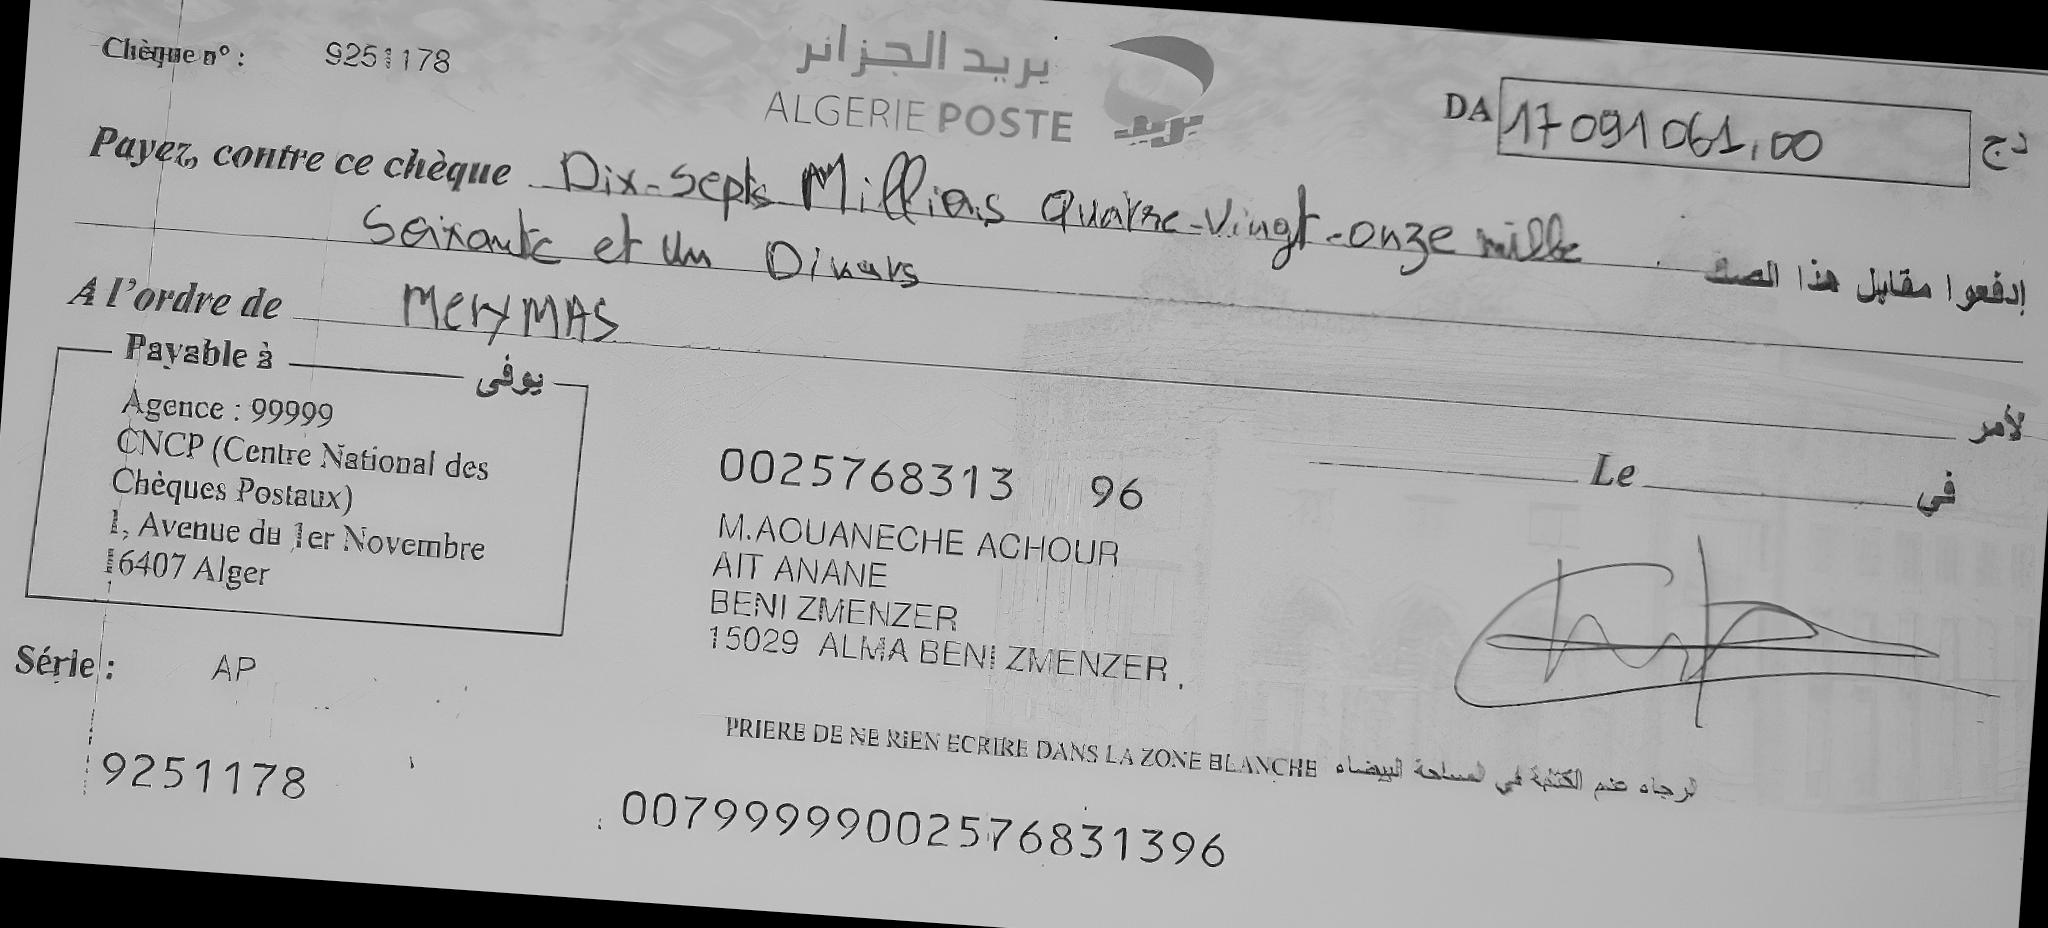 Chèque n° : 9251178
بريد الجزائر
ALGERIE POSTE
بريد
DA 17 091 061,00 دج
Payez, contre ce chèque Dix-Septs Millions Quatre-Vingt-onze mille
Soixante et un Dinars إدفعوا مقابل هذا الصك
A l'ordre de MeryMAS لأمر
Payable à يوفى
Agence : 99999
CNCP (Centre National des
Chèques Postaux)
1, Avenue du 1er Novembre
16407 Alger
Le في
0025768313 96
M.AOUANECHE ACHOUR
AIT ANANE
BENI ZMENZER
15029 ALMA BENI ZMENZER
Série : AP
PRIERE DE NE RIEN ECRIRE DANS LA ZONE BLANCHE الرجاء عدم الكتابة في المساحة البيضاء
9251178
00799999002576831396